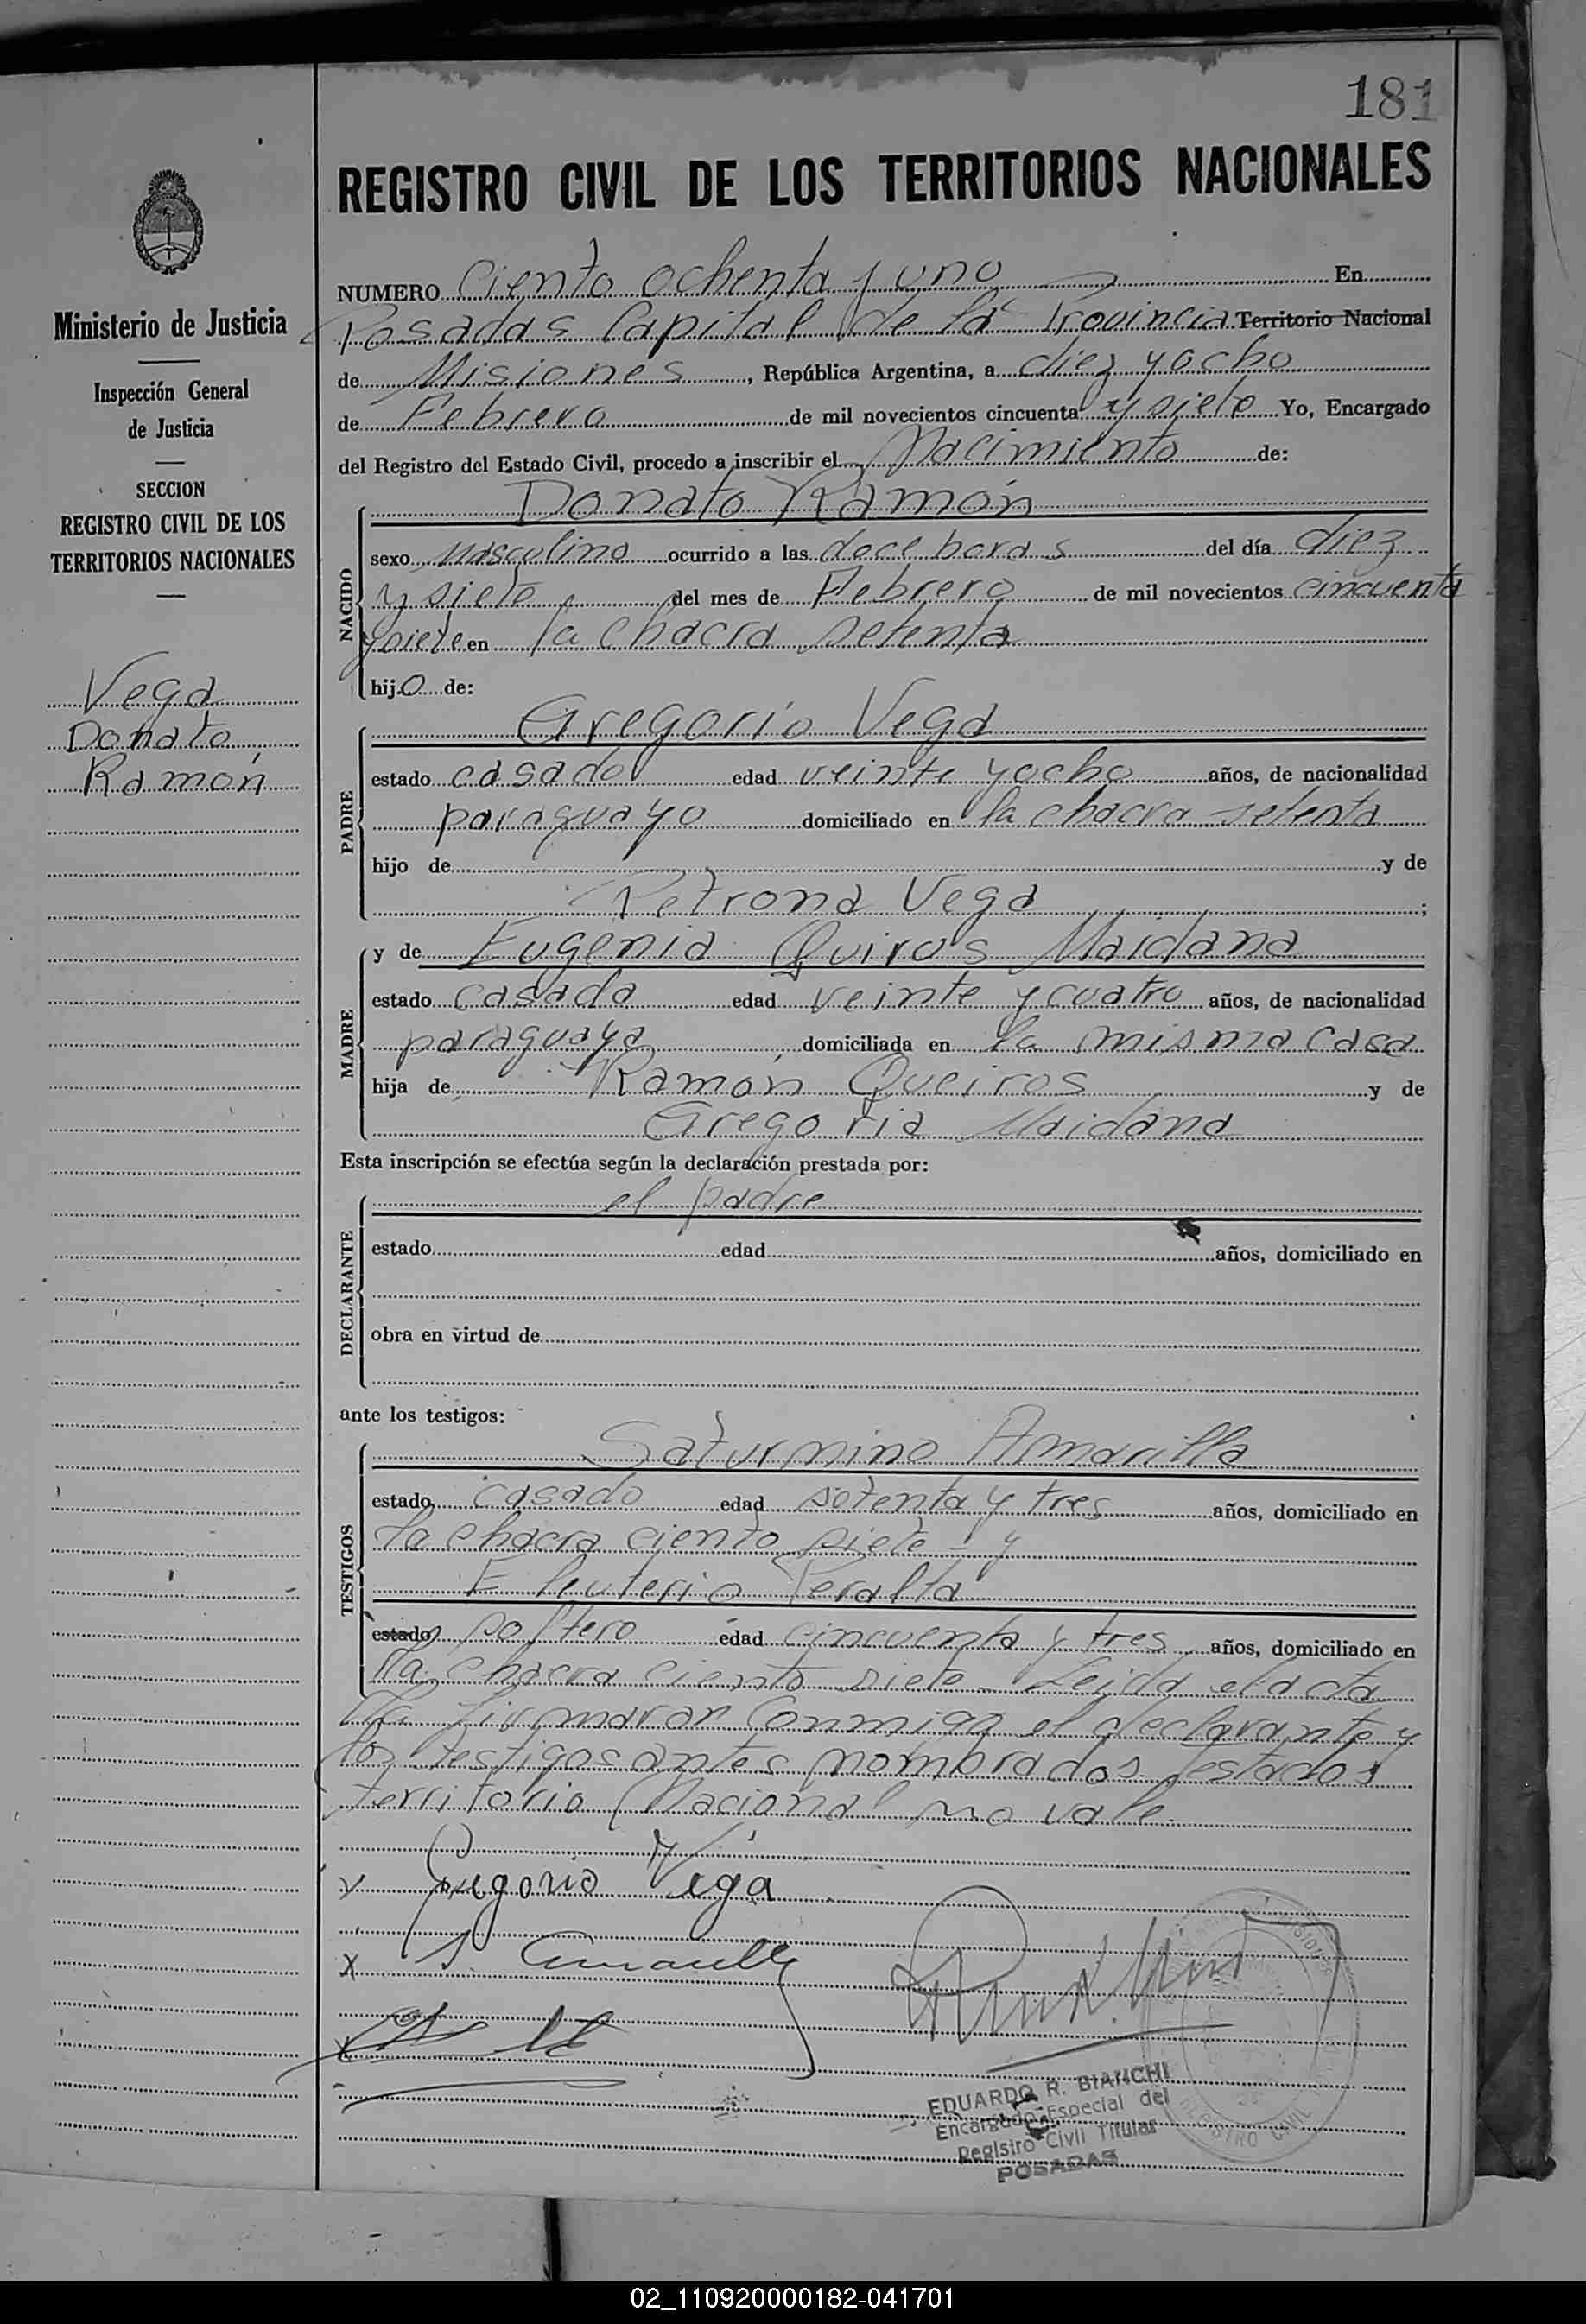 181
REGISTRO CIVIL DE LOS TERRITORIOS NACIONALES
Ministerio de Justicia
Inspección General
de Justicia
SECCION
REGISTRO CIVIL DE LOS
TERRITORIOS NACIONALES
Vega
Donato
Ramón
NUMERO Ciento ochenta y uno En
Posadas Capital de la Provincia Territorio Nacional
de Misiones, República Argentina, a diez y ocho
de Febrero de mil novecientos cincuenta y siete Yo, Encargado
del Registro del Estado Civil, procedo a inscribir el Nacimiento de:
NACIDO
Donato Ramón
sexo Masculino ocurrido a las doce horas del día diez
y siete del mes de Febrero de mil novecientos cincuenta
y siete en la chacra setenta
hijo de:
PADRE
Gregorio Vega
estado casado edad veinte y ocho años, de nacionalidad
paraguayo domiciliado en la chacra setenta
hijo de y de
Petrona Vega;
MADRE
y de Eugenia Quiros Maidana
estado casada edad veinte y cuatro años, de nacionalidad
paraguaya domiciliada en la misma casa
hija de Ramón Queiros y de
Gregoria Maidana
Esta inscripción se efectúa según la declaración prestada por:
DECLARANTE
el padre
estado edad años, domiciliado en
obra en virtud de
ante los testigos:
TESTIGOS
Saturnino Amarilla
estado casado edad setenta y tres años, domiciliado en
la chacra ciento siete - y
Eleuterio Peralta
estado soltero edad cincuenta y tres años, domiciliado en
la chacra ciento siete - Leida el acta
la firmaron conmigo el declarante y
los testigos antes nombrados testados
territorio Nacional no vale
x Gregorio Vega
x S. Amarilla
x
EDUARDO R. BIANCHI
Encargado Especial del
Registro Civil Titular
POSADAS
REGISTRO CIVIL
02_110920000182-041701